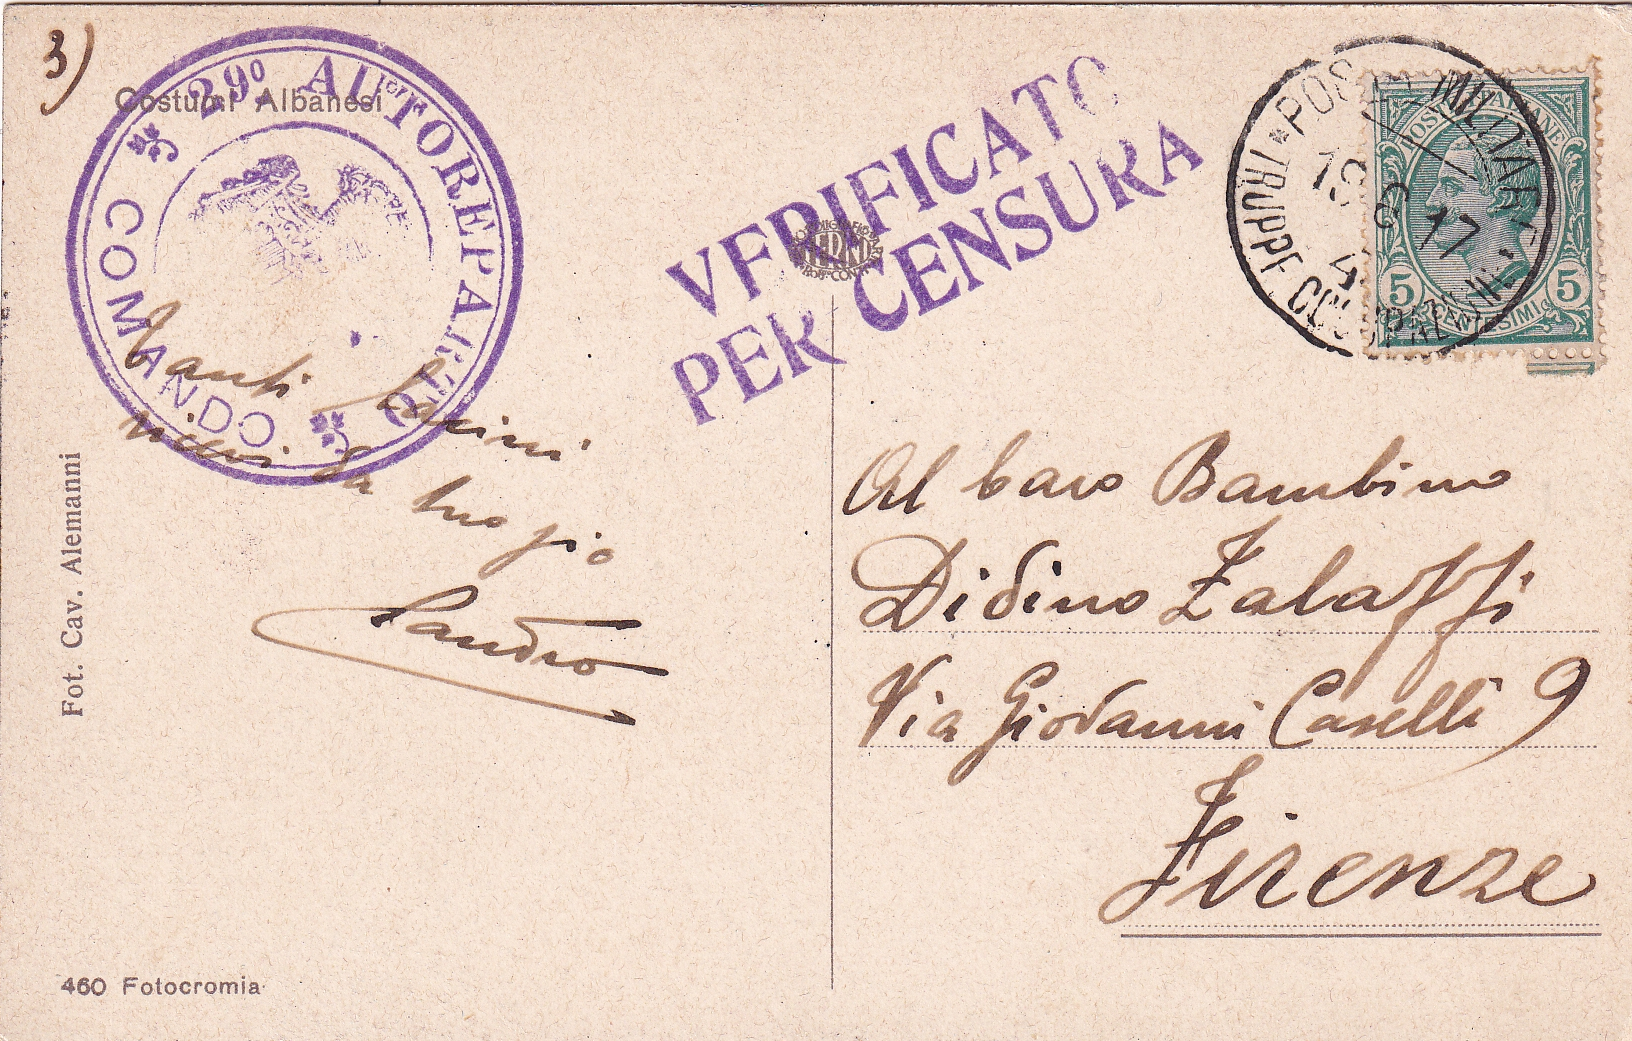 3)
Costumi Albanesi
29º AUTOREPARTO
COMANDO
VERIFICATO
PER CENSURA
POSTA MILITARE
19 6 17
4
TRUPPE
POSTE ITALIANE
5 5
CENTESIMI
TERNI
Tanti bacini
vicini da tuo zio
Sandro
Al caro Bambino
Didino Zalaffi
Via Giovanni Caselli 9
Firenze
Fot. Cav. Alemanni
460 Fotocromia